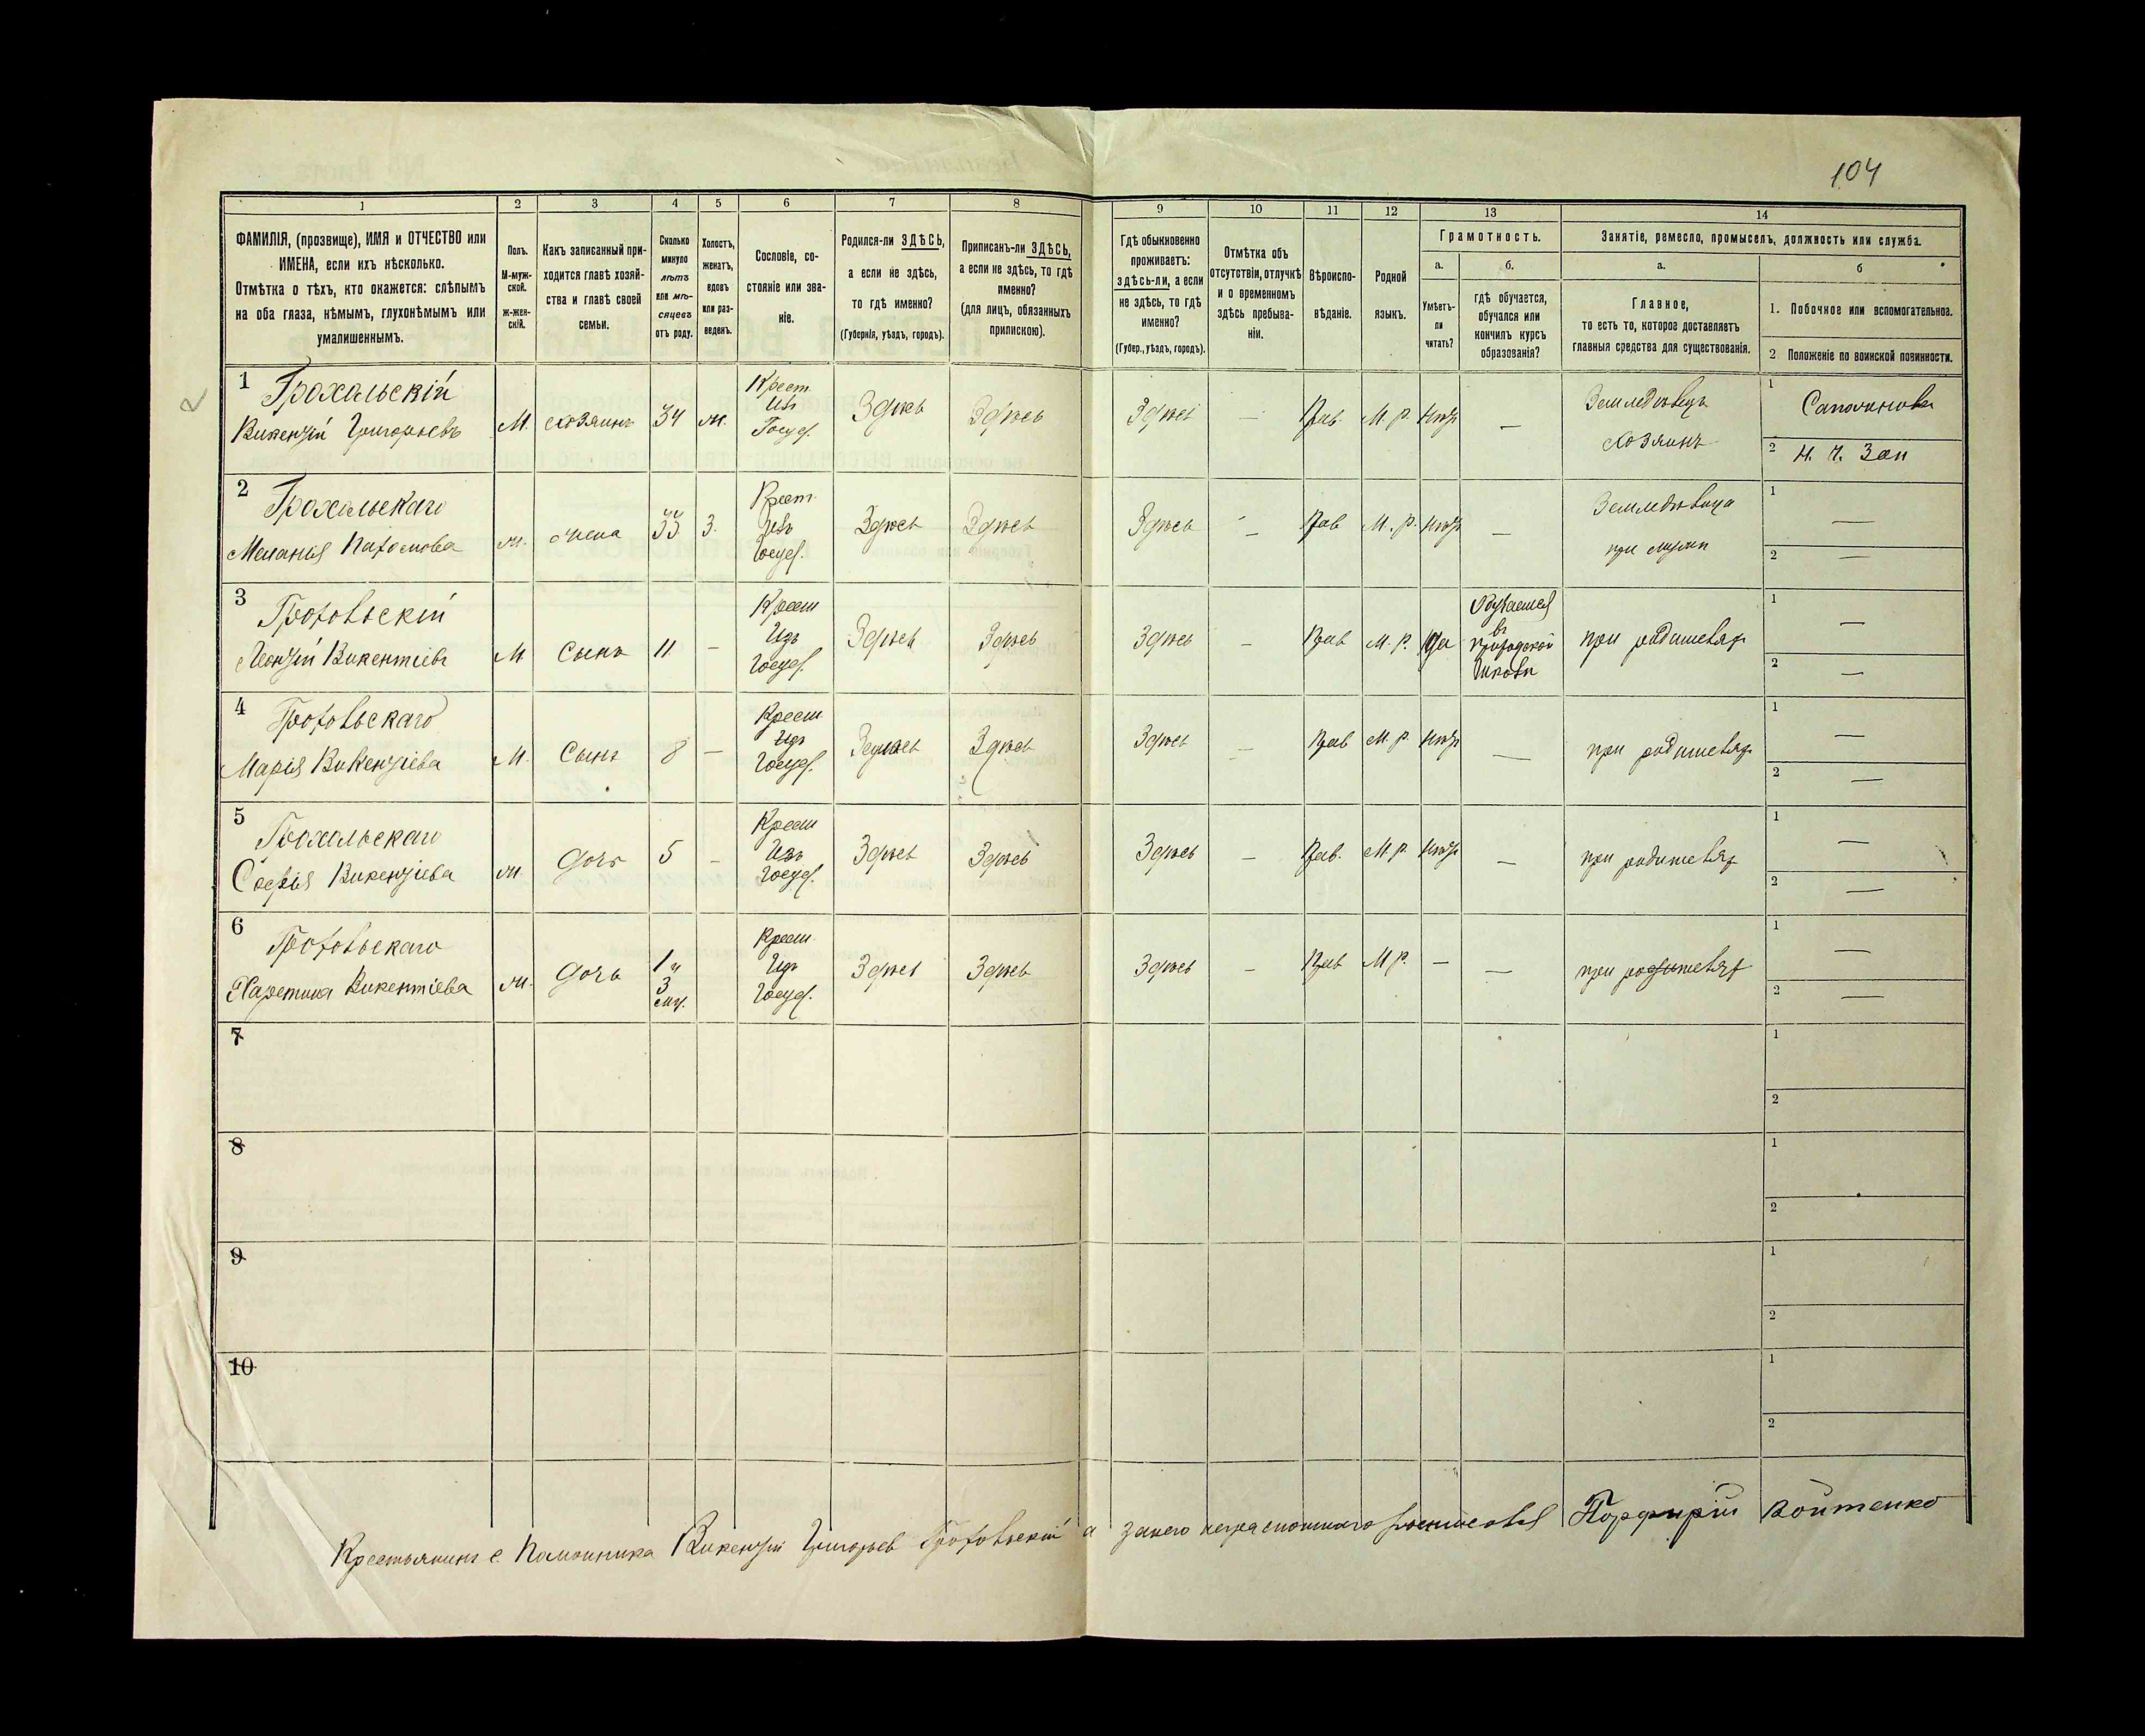 104
1 2 3 4 5 6 7 8 9 10 11 12 13 14
ФАМИЛІЯ, (прозвище), ИМЯ и ОТЧЕСТВО или
ИМЕНА, если ихъ нѣсколько.
Отмѣтка о тѣхъ, кто окажется: слѣпымъ
на оба глаза, нѣмымъ, глухонѣмымъ или
умалишеннымъ.
Полъ.
М-муж-
ской.
ж-жен-
скій.
Какъ записанный при-
ходится главѣ хозяй-
ства и главѣ своей
семьи.
Сколько
минуло
лѣтъ
или мѣ-
сяцевъ
отъ роду.
Холостъ,
женатъ,
вдовъ
или раз-
веденъ.
Сословіе, со-
стояніе или зва-
ніе.
Родился-ли ЗДѢСЬ,
а если не здѣсь,
то гдѣ именно?
(Губернія, уѣздъ, городъ).
Приписанъ-ли ЗДѢСЬ,
а если не здѣсь, то гдѣ
именно?
(для лицъ, обязанныхъ
припискою).
Гдѣ обыкновенно
проживаетъ:
здѣсь-ли, а если
не здѣсь, то гдѣ
именно?
(Губер., уѣздъ, городъ).
Отмѣтка объ
отсутствіи, отлучкѣ
и о временномъ
здѣсь пребыва-
ніи.
Вѣроиспо-
вѣданіе.
Родной
языкъ.
Грамотность.
а.
Умѣетъ-
ли
читать?
б.
гдѣ обучается,
обучался или
кончилъ курсъ
образованія?
Занятіе, ремесло, промыселъ, должность или служба.
а.
Главное,
то есть то, которое доставляетъ
главныя средства для существованія.
б
1. Побочное или вспомогательное.
2 Положеніе по воинской повинности.
1
Грохальскій
Викентій Григорьевъ
М.
хозяинъ
34
ж.
Крест.
Изъ
Госуд.
Здѣсь
Здѣсь
Здѣсь
—
Прав.
М. р.
нѣтъ
—
Земледѣлецъ
хозяинъ
1
2 Н. Ч. Зап
2
Грохальскаго
Меланія
ж.
жена
33
З.
Крест.
Изъ
Госуд.
Здѣсь
Здѣсь
Здѣсь
—
Прав
М. р.
нѣтъ
—
Земледѣлица
при мужи
1 —
2 —
3
Грохольскій
Леонтій Викентіевъ
М
Сынъ
11
—
Крест
Изъ
Госуд.
Здѣсь
Здѣсь
Здѣсь
—
Прав
М. р.
Да
Обучается
въ
Школѣ
при родителяхъ
1 —
2 —
4
Грохольскаго
Марія Викентіева
М.
Сынъ
8
—
Крест
Изъ
Госуд.
Здѣсь
Здѣсь
Здѣсь
—
Прав
М. р.
нѣтъ
—
при родителяхъ
1 —
2 —
5
Грохальскаго
Софія Викентіева
ж.
дочь
5
—
Крест
Изъ
Госуд.
Здѣсь
Здѣсь
Здѣсь
—
Прав.
М. р
нѣтъ
—
при родителяхъ
1 —
2 —
6
Грохольскаго
Харетина Викентіева
ж.
дочь
1 и
3
мѣс.
Крест.
Изъ
Госуд.
Здѣсь
Здѣсь
Здѣсь
—
Прав
М р.
—
—
при родителяхъ
1 —
2 —
7
1
2
8
1
2
9
1
2
10
1
2
Крестьянинъ с. Викентій Григорьев Грохольскій а занего неграмотнаго Порфирій Войтенко